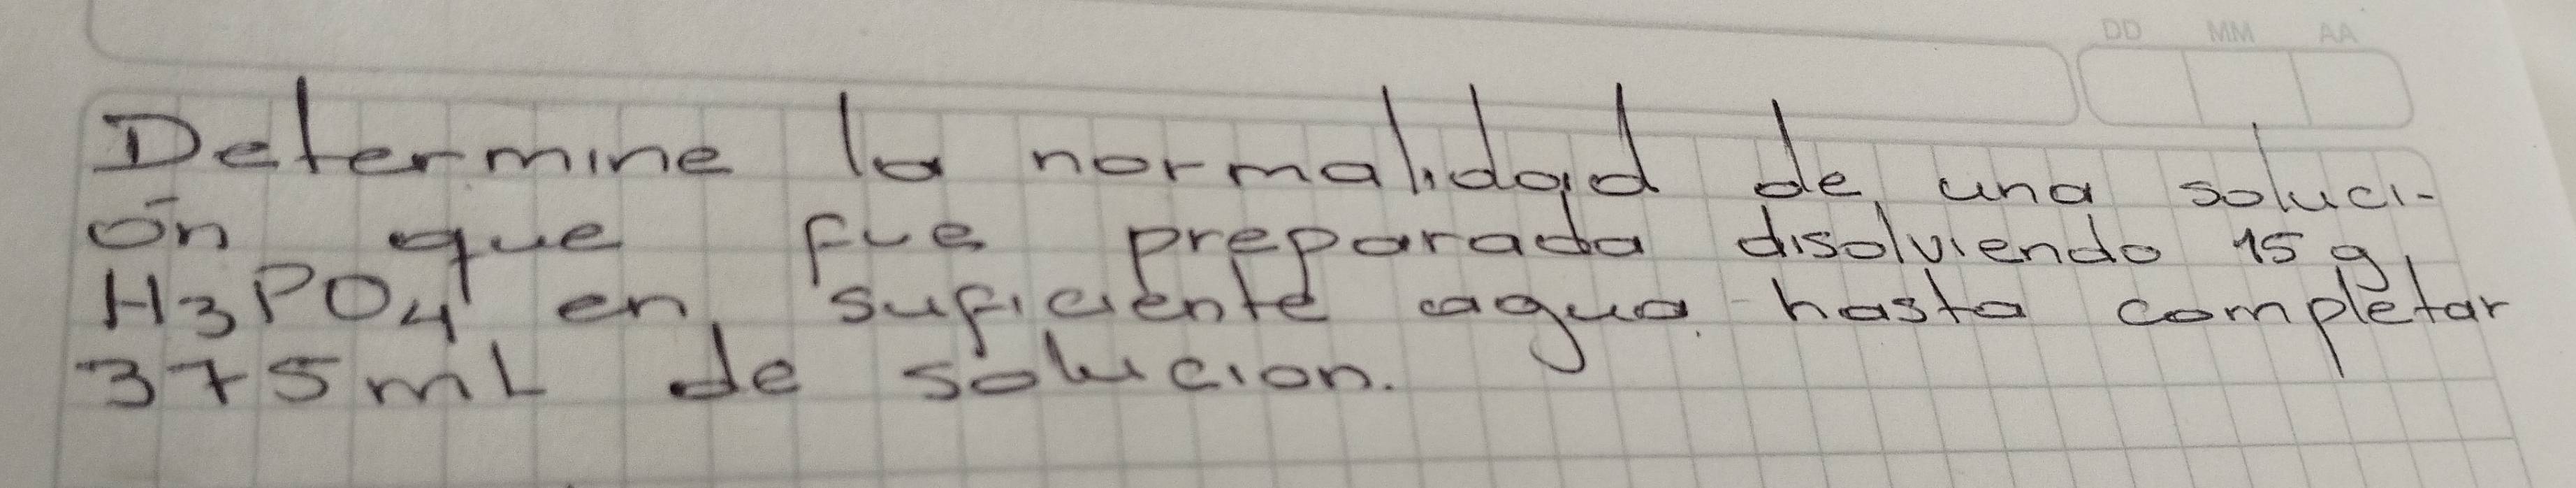 DD MM AA
Determine la normalidad de una soluci-
ón que fue preparada disolviendo 15 g
H3PO4 en suficiente agua hasta completar
375 mL de solucion.